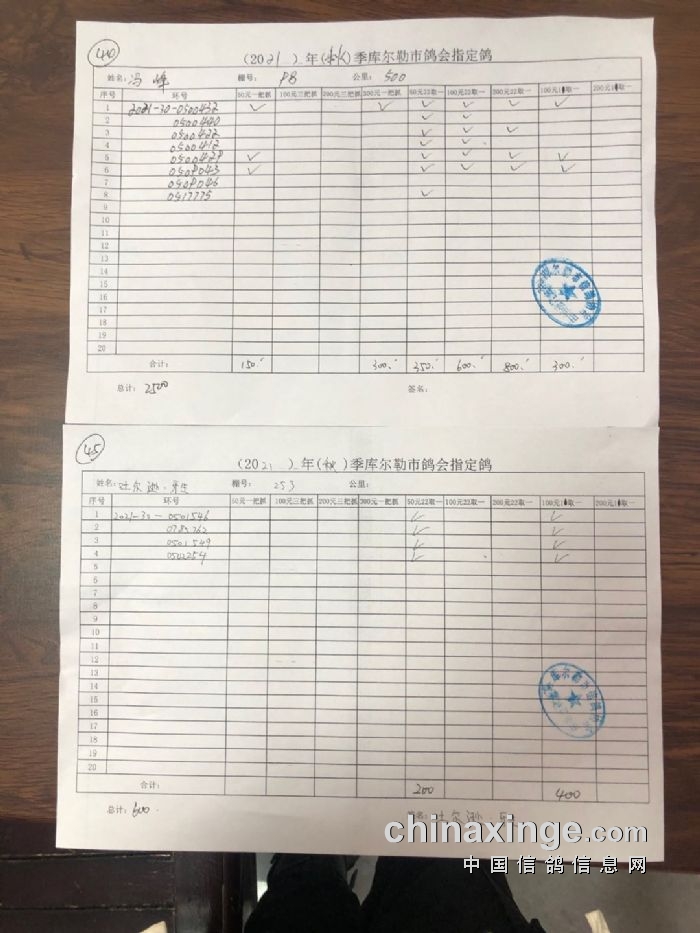 40
(2021)年(秋)季库尔勒市鸽会指定鸽
姓名: 冯峰 棚号: P8 公里: 500
序号 环号 50元一把抓 100元三把抓 200元三把抓 300元一把抓 50元22取一 100元22取一 200元22取一 100元10取一 200元10取一
1 2021-30-0500432 ✓ ✓ ✓ ✓ ✓ ✓
2 0500440 ✓ ✓
3 0500422 ✓ ✓ ✓
4 0500412 ✓ ✓
5 0500429 ✓ ✓ ✓ ✓ ✓
6 0509043 ✓ ✓ ✓ ✓ ✓
7 0509046
8 0517775 ✓
9
10
11
12
13
14
15
16
17
18
19
20
合计: 150. 300. 350. 600. 800. 300.
总计: 2500 签名:
45
(2021)年(秋)季库尔勒市鸽会指定鸽
姓名: 吐尔逊. 棚号: 253 公里:
序号 环号 50元一把抓 100元三把抓 200元三把抓 300元一把抓 50元22取一 100元22取一 200元22取一 100元10取一 200元10取一
1 2021-30-0501546 ✓ ✓
2 ✓ ✓
3 0501549 ✓ ✓
4 0502254 ✓ ✓
5
6
7
8
9
10
11
12
13
14
15
16
17
18
19
20
合计: 200 400
总计: 600. 签名: 吐尔逊.
chinaxinge.com
中国信鸽信息网